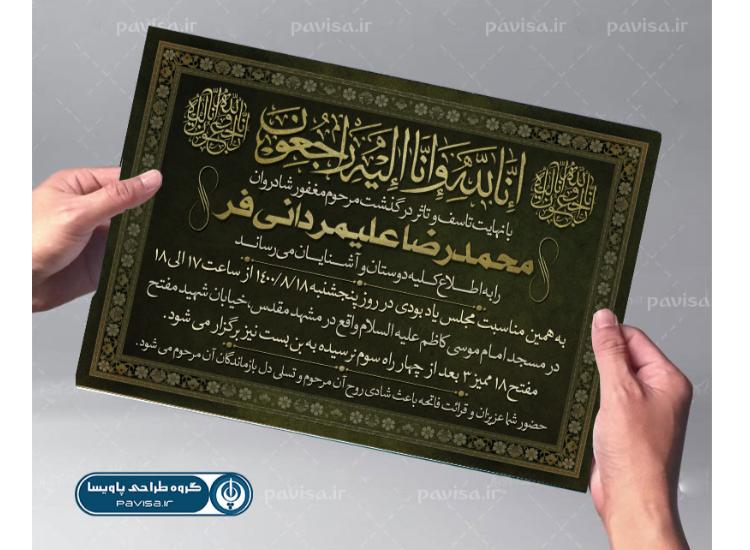 pavisa.ir pavisa.ir pavisa.ir pavisa.ir
انا لله وانا اليه راجعون
إنا لله وإنا إليه راجعون
انا لله وانا اليه راجعون
با نهایت تاسف و تاثر درگذشت مرحوم مغفور شادروان
محمدرضا علیمردانی فر
را به اطلاع کلیه دوستان و آشنایان می رساند
به همین مناسبت مجلس یادبودی در روز پنجشنبه ۱۴۰۰/۸/۱۸ از ساعت ۱۷ الی ۱۸
در مسجد امام موسی کاظم علیه السلام واقع در مشهد مقدس، خیابان شهید مفتح
مفتح ۱۸ ممیز ۳ بعد از چهار راه سوم نرسیده به بن بست نیز برگزار می شود.
حضور شما عزیزان و قرائت فاتحه باعث شادی روح آن مرحوم و تسلی دل بازماندگان آن مرحوم می شود.
pavisa.ir
گروه طراحی پاویسا
PAVISA.IR
pavisa.ir pavisa.ir